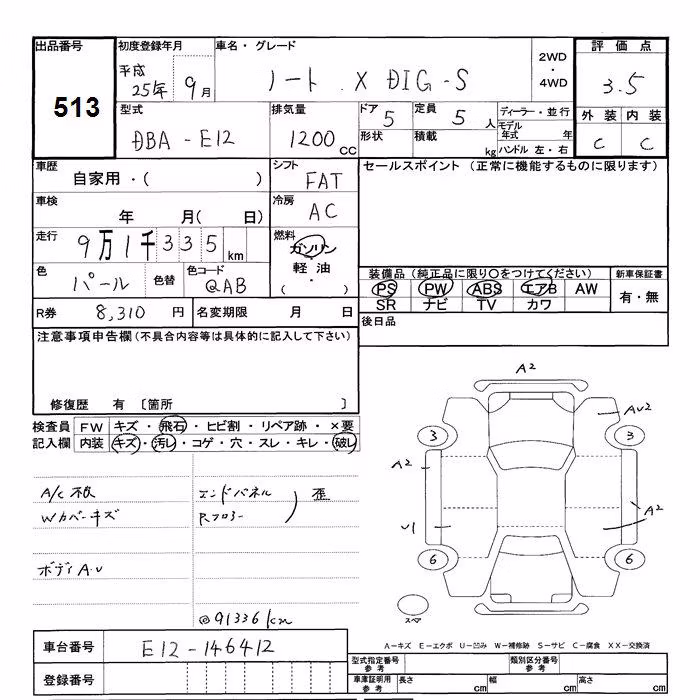 出品番号 初度登録年月 車名・グレード 2WD・4WD 評価点
513 平成25年 9月 ノート X DIG-S 3.5
型式 排気量 ドア 5 定員 5人 ディーラー・並行 外装 内装
DBA-E12 1200cc 形状 積載 kg モデル年式 年 C C
ハンドル 左・右
車歴 自家用・( ) シフト FAT セールスポイント (正常に機能するものに限ります)
車検 年 月( 日) 冷房 AC
走行 9万1千335km 燃料 ガソリン
軽油・( )
色 パール 色替 色コード QAB 装備品(純正品に限り○をつけてください) 新車保証書
PS PW ABS エアB AW 有・無
SR ナビ TV カワ
R券 8,310円 名変期限 月 日 後日品
注意事項申告欄(不具合内容等は具体的に記入して下さい)
修復歴 有 〔箇所 〕
検査員 FW キズ・飛石・ヒビ割・リペア跡・×要
記入欄 内装 キズ・汚レ・コゲ・穴・スレ・キレ・破レ
A2
AU2
3 3
A2
A/C不良 エンドパネル 歪
Wカバーキズ Rフロアー
A2
U1
6 6
ボディA・U
@91336km
スペア
A-キズ E-エクボ U-凹み W-補修跡 S-サビ C-腐食 XX-交換済
車台番号 E12-146412
型式指定番号 参考 類別区分番号 参考
登録番号
車庫証明用 参考 長さ cm 幅 cm 高さ cm